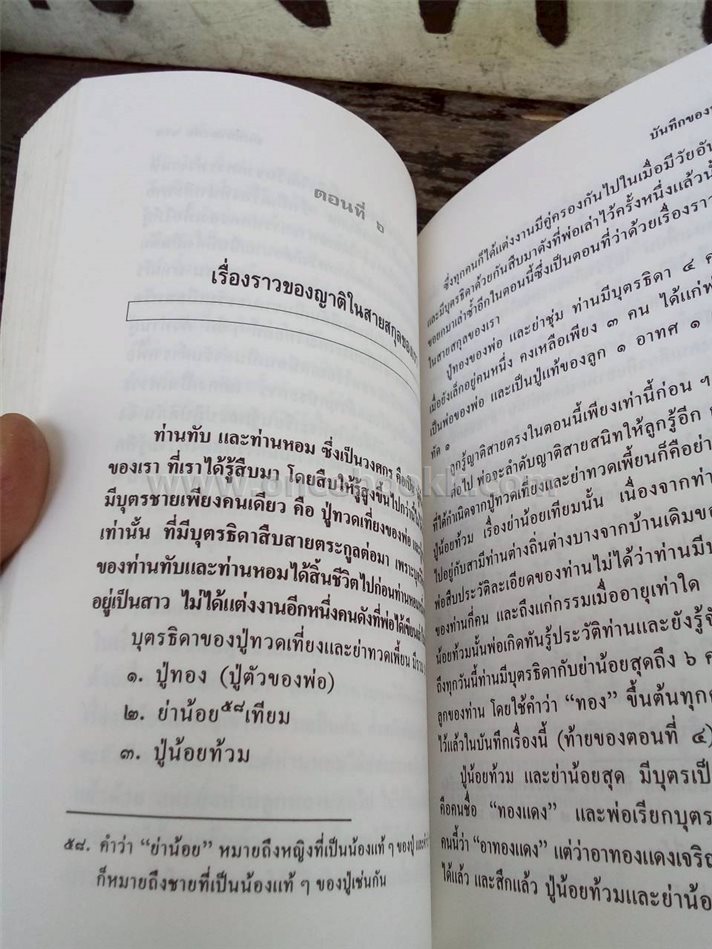 ตอนที่ ๒
เรื่องราวของญาติในสายสกุลของเรา
ท่านทับ และท่านหอม ซึ่งเป็นวงศกร คือ
ของเรา ที่เราได้รู้สืบมา โดยสืบให้รู้สูงขึ้นไปกว่านี้
มีบุตรชายเพียงคนเดียว คือ ปู่ทวดเที่ยงของพ่อ
เท่านั้น ที่มีบุตรธิดาสืบสายตระกูลต่อมา เพราะ
ของท่านทับและท่านหอมได้สิ้นชีวิตไปก่อนท่านหอม
อยู่เป็นสาว ไม่ได้แต่งงานอีกหนึ่งคนดังที่พ่อได้เขียน
บุตรธิดาของปู่ทวดเที่ยงและย่าทวดเพี้ยน มี
๑. ปู่ทอง (ปู่ตัวของพ่อ)
๒. ย่าน้อย๕๘เทียม
๓. ปู่น้อยท้วม
๕๘. คำว่า “ย่าน้อย” หมายถึงหญิงที่เป็นน้องแท้ ๆ ของปู่
ก็หมายถึงชายที่เป็นน้องแท้ ๆ ของปู่เช่นกัน
บันทึกของ
ซึ่งทุกคนก็ได้แต่งงานมีคู่ครองกันไปในเมื่อมีวัยอัน
และมีบุตรธิดาด้วยกันสืบมาดังที่พ่อเล่าไว้ครั้งหนึ่งแล้ว
ขอยกมาเล่าซ้ำอีกในตอนนี้ซึ่งเป็นตอนที่ว่าด้วยเรื่องราว
ในสายสกุลของเรา
ปู่ทองของพ่อ และย่าชุ่ม ท่านมีบุตรธิดา ๔ ค
เมื่อยังเล็กอยู่คนหนึ่ง คงเหลือเพียง ๓ คน ได้แก่
เป็นพ่อของพ่อ และเป็นปู่แท้ของลูก ๑ อาทศ ๑
ทัด ๑
ลูกรู้ญาติสายตรงในตอนนี้เพียงเท่านี้ก่อน ๆ
ต่อไป พ่อจะลำดับญาติสายสนิทให้ลูกรู้อีก
ที่ได้กำเนิดจากปู่ทวดเที่ยงและย่าทวดเพี้ยนก็คืออย่า
ปู่น้อยท้วม เรื่องย่าน้อยเทียมนั้น เนื่องจากท่า
ไปอยู่กับสามีท่านต่างถิ่นต่างบางจากบ้านเดิมของ
พ่อสืบประวัติละเอียดของท่านไม่ได้ว่าท่านมีบ
ของท่านกี่คน และถึงแก่กรรมเมื่ออายุเท่าใด
น้อยท้วมนั้นพ่อเกิดทันรู้ประวัติท่านและยังรู้จั
ถึงทุกวันนี้ท่านมีบุตรธิดากับย่าน้อยสุดถึง ๖ ค
ลูกของท่าน โดยใช้คำว่า “ทอง” ขึ้นต้นทุกค
ไว้แล้วในบันทึกเรื่องนี้ (ท้ายของตอนที่ ๔)
ปู่น้อยท้วม และย่าน้อยสุด มีบุตรเป็
คือคนชื่อ “ทองแดง” และพ่อเรียกบุตร
คนนี้ว่า “อาทองแดง” แต่ว่าอาทองแดงเจริญ
ได้แล้ว และสึกแล้ว ปู่น้อยท้วมและย่าน้อ